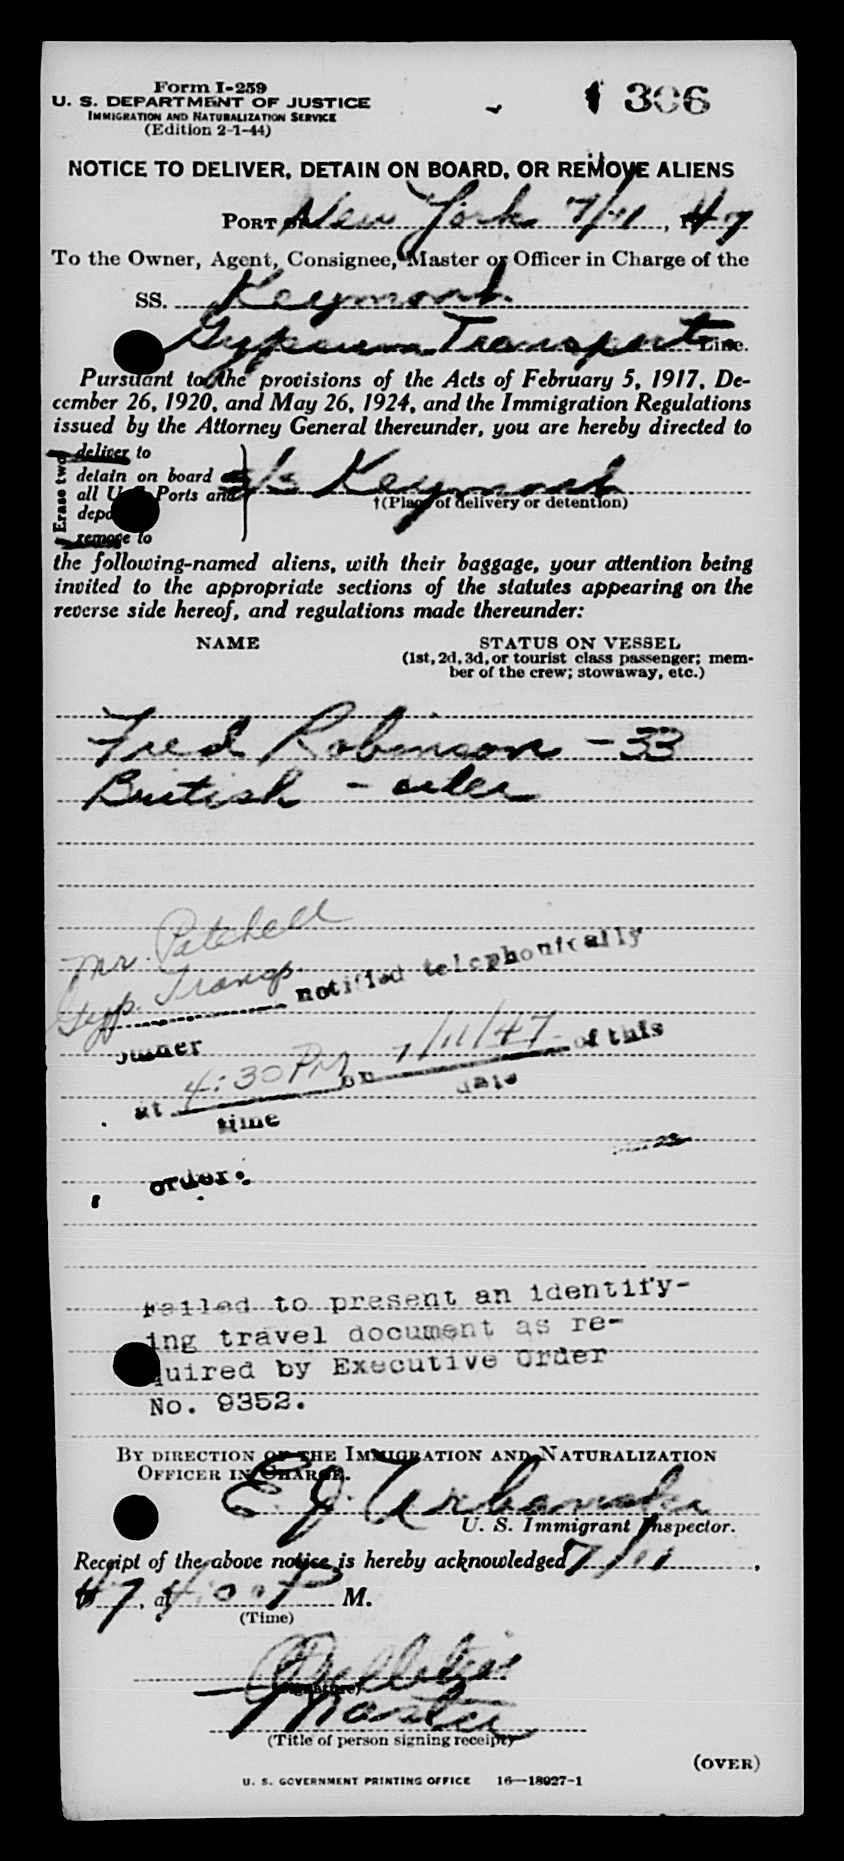 Form I-259
U. S. DEPARTMENT OF JUSTICE
IMMIGRATION AND NATURALIZATION SERVICE
(Edition 2-1-44)
306
NOTICE TO DELIVER, DETAIN ON BOARD, OR REMOVE ALIENS
PORT OF New York 7/11, 1947
To the Owner, Agent, Consignee, Master or Officer in Charge of the
SS. Keymont
Gypsum Transport Line.
Pursuant to the provisions of the Acts of February 5, 1917, De-
cember 26, 1920, and May 26, 1924, and the Immigration Regulations
issued by the Attorney General thereunder, you are hereby directed to
Erase two
deliver to
detain on board at
all U. S. Ports and
remove to
s/s Keymont
†(Place of delivery or detention)
the following-named aliens, with their baggage, your attention being
invited to the appropriate sections of the statutes appearing on the
reverse side hereof, and regulations made thereunder:
NAME
STATUS ON VESSEL
(1st, 2d, 3d, or tourist class passenger; mem-
ber of the crew; stowaway, etc.)
Fred Robinson - 33
British - oiler
Mr. Patchell
Gyp. Transp. notified telephonically
owner
at 4:30 PM on 7/11/47 of this
time date
order.
Failed to present an identify-
ing travel document as re-
quired by Executive Order
No. 9352.
BY DIRECTION OF THE IMMIGRATION AND NATURALIZATION
OFFICER IN CHARGE.
E. J. Urbanski
U. S. Immigrant Inspector.
Receipt of the above notice is hereby acknowledged 7/11,
47, at 4:00 P M.
(Time)
(Signature)
Master
(Title of person signing receipt)
(OVER)
U. S. GOVERNMENT PRINTING OFFICE 16—18927-1